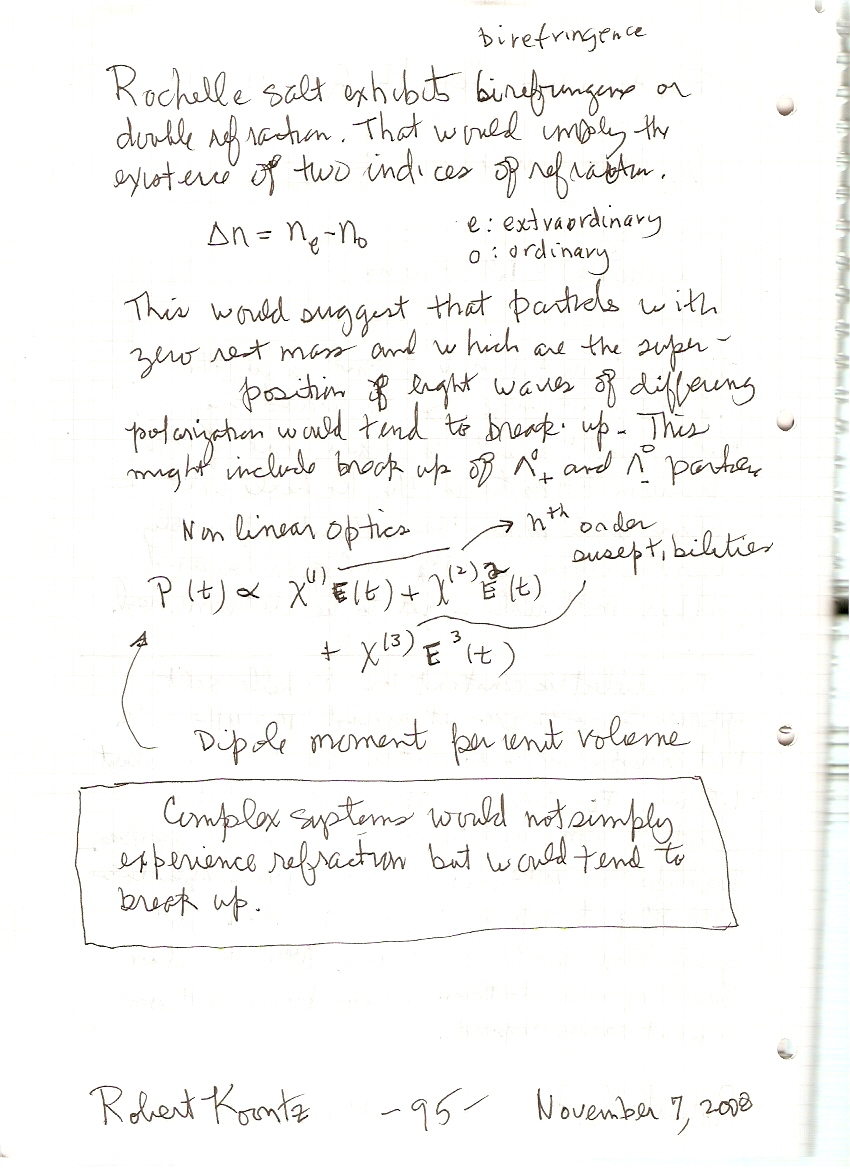 birefringence
Rochelle salt exhibits birefringence or
double refraction. That would imply the
existence of two indices of refraction.
Δn = nₑ - nₒ
e : extraordinary
o : ordinary
This would suggest that particles with
zero rest mass and which are the super-
position of light waves of differing
polarization would tend to break up. This
might include break up of Λ⁰₊ and Λ⁰₋ particles
Non linear optics
→ nᵗʰ order
suseptibilities
P(t) ∝ χ⁽¹⁾E(t) + χ⁽²⁾E²(t)
+ χ⁽³⁾E³(t)
Dipole moment per unit volume
Complex systems would not simply
experience refraction but would tend to
break up.
Robert Koontz -95- November 7, 2008